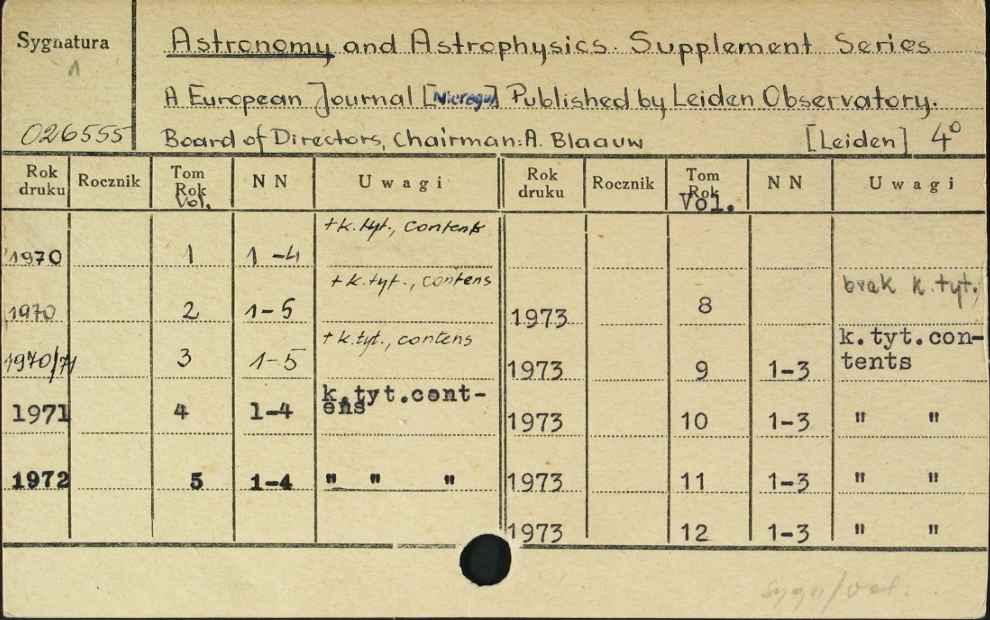 Sygnatura
026555
Astronomy and Astrophysics. Supplement Series
A European Journal [Nieregul] Published by Leiden Observatory.
Board of Directors, Chairman: A. Blaauw [Leiden] 4º
Rok druku Rocznik Tom Rok Vol. NN Uwagi Rok druku Rocznik Tom Rok Vol. NN Uwagi
1970 1 1-4 +k.tyt., contents
1970 2 1-5 +k.tyt., contens
1970/71 3 1-5 +k.tyt., contens
1971 4 1-4 k.tyt.cont-
ens
1972 5 1-4 " " "
1973 8 brak k.tyt.
1973 9 1-3 k.tyt.con-
tents
1973 10 1-3 " "
1973 11 1-3 " "
1973 12 1-3 " "
sygn/vol.